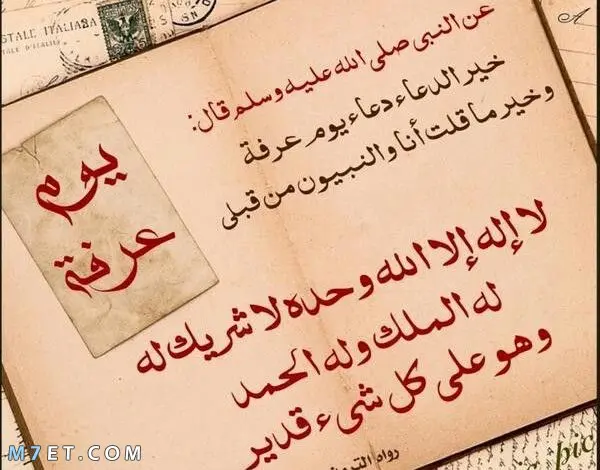 STALE ITALIANA
عن النبي صلى الله عليه وسلم قال:
خير الدعاء دعاء يوم عرفة
وخير ما قلت أنا والنبيون من قبلي
يوم
عرفة
لا إله إلا الله وحده لا شريك له
له الملك وله الحمد
وهو على كل شيء قدير
رواه
M7ET.COM